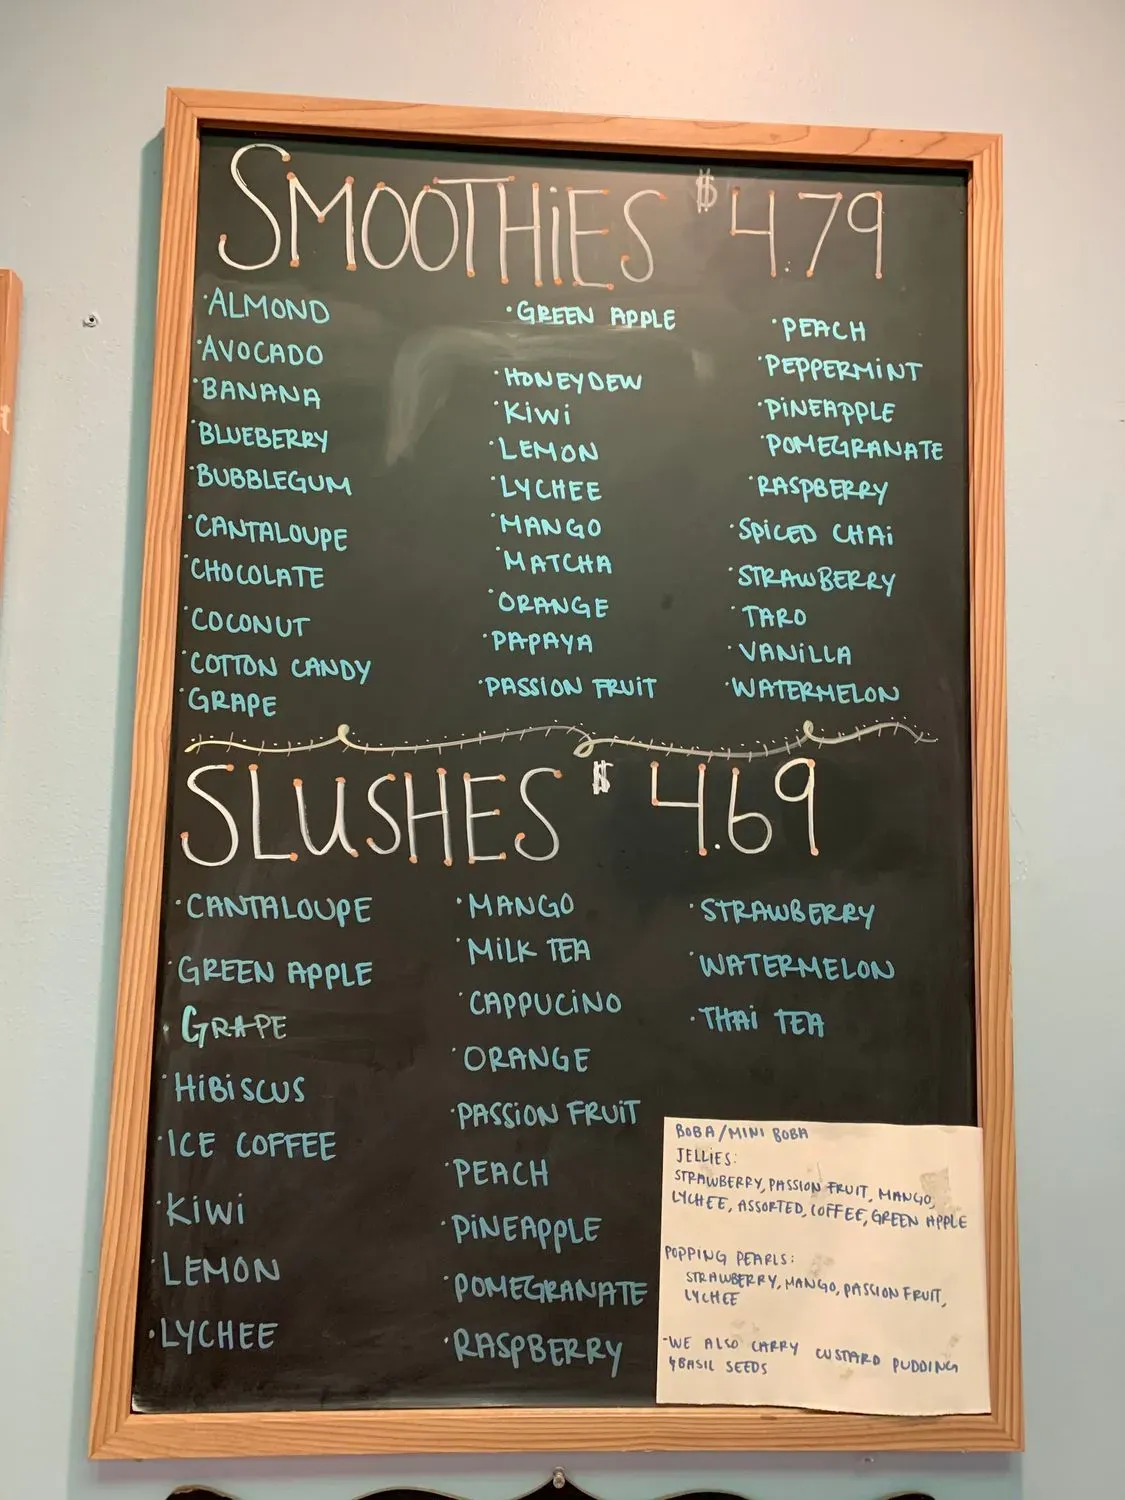 SMOOTHIES $4.79
·ALMOND
·AVOCADO
·BANANA
·BLUEBERRY
·BUBBLEGUM
·CANTALOUPE
·CHOCOLATE
·COCONUT
·COTTON CANDY
·GRAPE
·GREEN APPLE
·HONEYDEW
·KIWI
·LEMON
·LYCHEE
·MANGO
·MATCHA
·ORANGE
·PAPAYA
·PASSION FRUIT
·PEACH
·PEPPERMINT
·PINEAPPLE
·POMEGRANATE
·RASPBERRY
·SPICED CHAI
·STRAWBERRY
·TARO
·VANILLA
·WATERMELON
SLUSHES $4.69
·CANTALOUPE
·GREEN APPLE
·GRAPE
·HIBISCUS
·ICE COFFEE
·KIWI
·LEMON
·LYCHEE
·MANGO
·MILK TEA
·CAPPUCINO
·ORANGE
·PASSION FRUIT
·PEACH
·PINEAPPLE
·POMEGRANATE
·RASPBERRY
·STRAWBERRY
·WATERMELON
·THAI TEA
BOBA/MINI BOBA
JELLIES:
STRAWBERRY, PASSION FRUIT, MANGO,
LYCHEE, ASSORTED, COFFEE, GREEN APPLE
POPPING PEARLS:
STRAWBERRY, MANGO, PASSION FRUIT,
LYCHEE
-WE ALSO CARRY CUSTARD PUDDING
& BASIL SEEDS